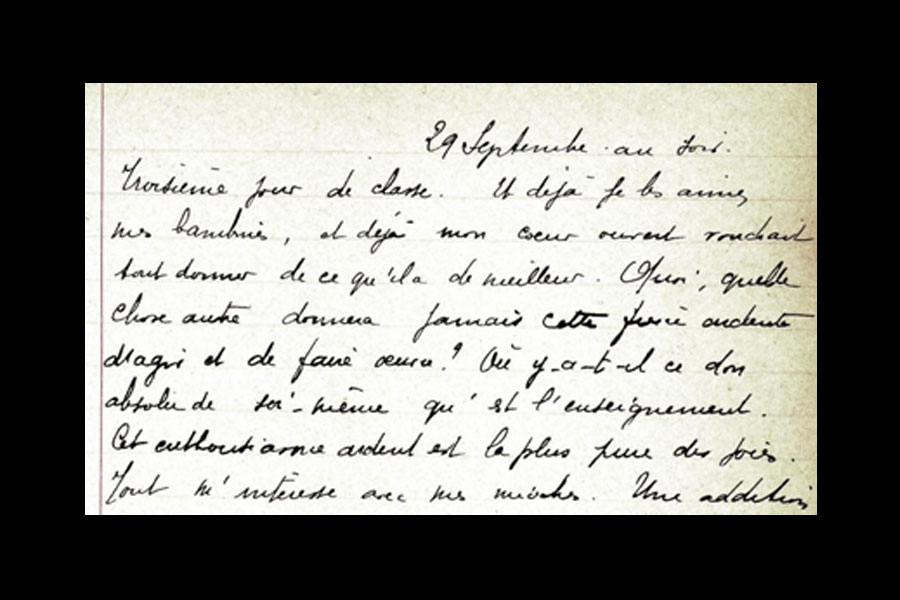 29 Septembre au soir.
Troisième jour de classe. Et déjà je les aime,
mes bambins, et déjà mon coeur ouvert voudrait
tout donner de ce qu'il a de meilleur. Quoi, quelle
chose autre donnera jamais cette ardente
d'agir et de faire oeuvre ? Où y-a-t-il ce don
absolu de soi-même qu'est l'enseignement.
Cet enthousiasme ardent est la plus pure des joies.
Tout m'intéresse avec mes mioches. Une addition